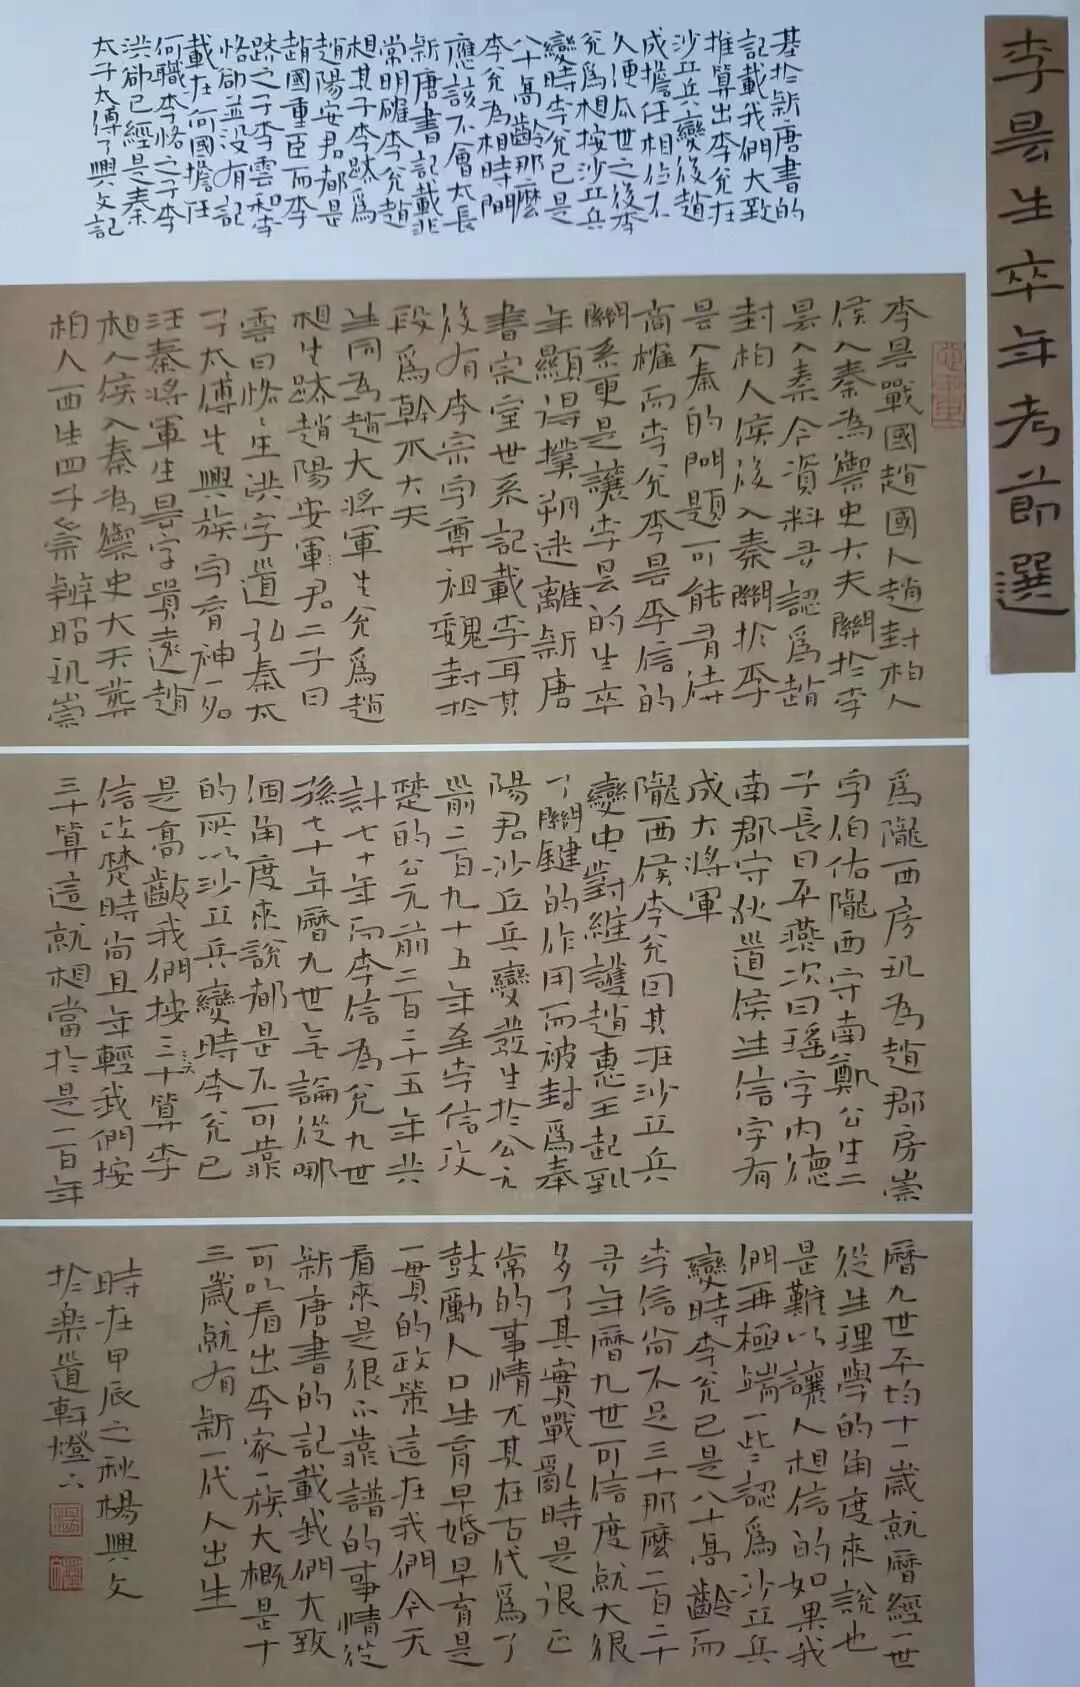 李曇生卒年考節選
基於新唐書的
記載我們大致
推算出李兌在
沙丘兵變後趙
成擔任相位不
久便瓜世之後李
兌為相按沙丘兵
變時李兌已是
八十高齡那麼
李兌為相時間
應該不會太長
新唐書記載非
常明確李兌趙
相其子李跡為
趙陽安君都是
趙國重臣而李
跡之子李雲和李
恪卻並沒有記
載在何國擔任
何職李恪之子李
洪卻已經是秦
太子太傅了興文記
李曇戰國趙國人趙封柏人
侯入秦為御史大夫關於李
曇入秦今資料多認為趙
封柏人侯後入秦關於李
曇入秦的問題可能有待
商榷而李兌李曇李信的
關系更是讓李曇的生卒
年顯得撲朔迷離新唐
書宗室世系記載李耳其
後有李宗字尊祖魏封於
段為幹木大夫
生同為趙大將軍生兌為趙
相生跡趙陽安軍君二子曰
雲曰恪〻生洪字道弘秦太
子太傅生興族字育神一名
汪秦將軍生曇字貴遠趙
柏人侯入秦為御史大夫葬
柏人西生四子崇辨昭璣崇
為隴西房璣為趙郡房崇
字伯佑隴西守南鄭公生二
子長曰平燕次曰瑤字內德
南郡守狄道侯生信字有
成大將軍
隴西侯李兌因其在沙丘兵
變中對維護趙惠王起到
了關鍵的作用而被封為奉
陽君沙丘兵變發生於公元
前二百九十五年至李信攻
楚的公元前二百二十五年共
計七十年而李信為兌九世
孫七十年曆九世無論從哪
個角度來說都是不可靠
的所以沙丘兵變時李兌已
是高齡我們按三十算李
信攻楚時尚且年輕我們按
三十算這就相當於是一百年
曆九世平均十一歲就曆經一世
從生理學的角度來說也
是難以讓人相信的如果我
們再極端一些認為沙丘兵
變時李兌已是八十高齡而
李信尚不足三十那麼一百二十
多年曆九世可信度就大很
多了其實戰亂時是很正
常的事情尤其在古代為了
鼓勵人口生育早婚早育是
一貫的政策這在我們今天
看來是很不靠譜的事情從
新唐書的記載我們大致
可以看出李家一族大概是十
三歲就有新一代人出生
時在甲辰之秋楊興文
於樂道軒燈下